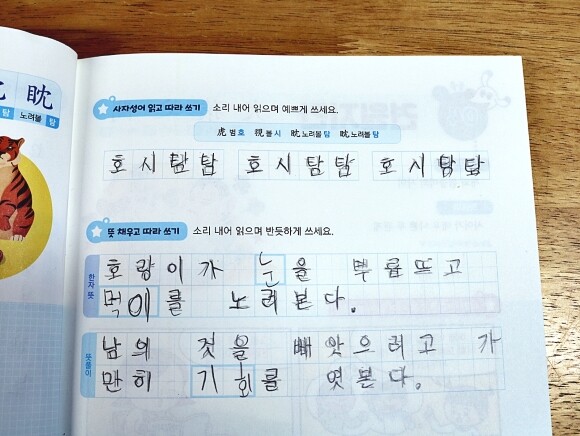 眈
탐 노려볼 탐
사자성어 읽고 따라 쓰기 소리 내어 읽으며 예쁘게 쓰세요.
虎 범 호 視 볼 시 眈 노려볼 탐 眈 노려볼 탐
호시탐탐 호시탐탐 호시탐탐
뜻 채우고 따라 쓰기 소리 내어 읽으며 반듯하게 쓰세요.
한자 뜻
호랑이가 눈을 부릅뜨고
먹이를 노려본다.
뜻풀이
남의 것을 빼앗으려고 가
만히 기회를 엿본다.